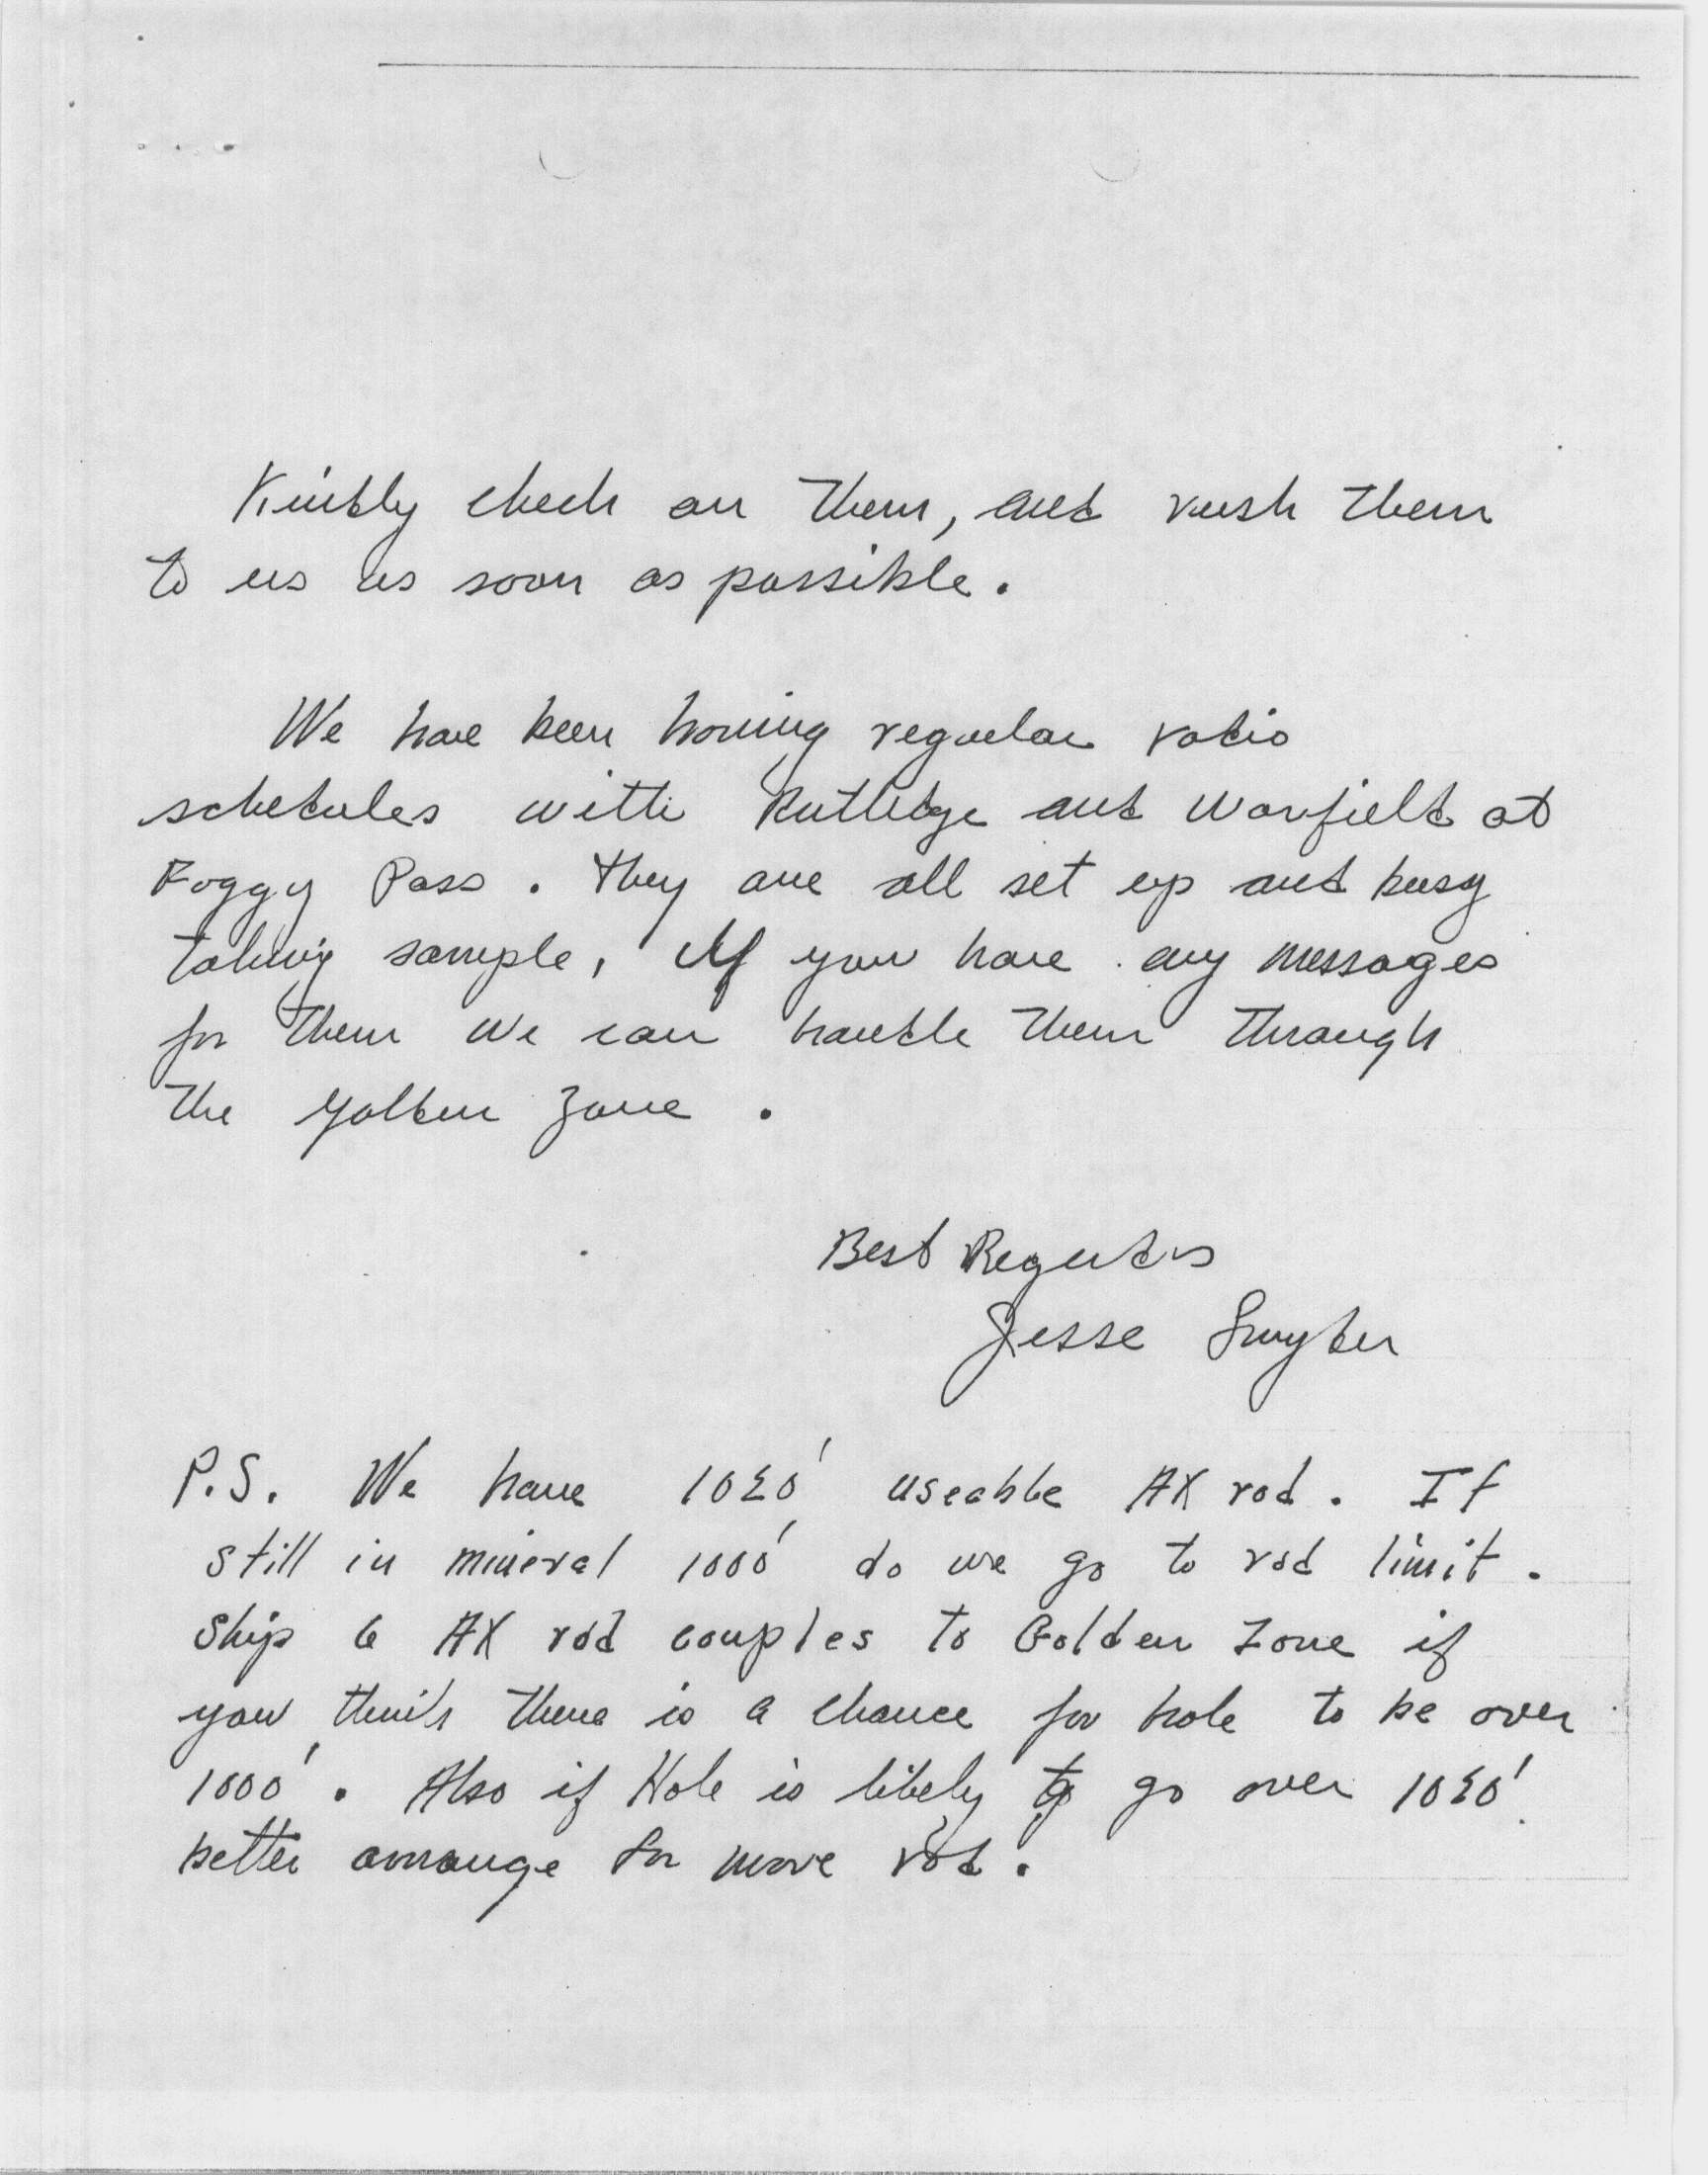 Kindly check on them, and rush them
to us as soon as possible.
We have been having regular radio
schedules with Rutledge and Warfield at
Foggy Pass. They are all set up and busy
taking sample, If you have any messages
for them we can handle them through
the Golden Zone.
Best Regards
Jesse Snyder
P.S. We have useable AX rod. If
still in mineral 1000' do we go to rod limit.
Ship 6 AX rod couples to Golden Zone if
you think there is a chance for hole to be over
1000'. Also if Hole is likely to go over
better arrange for more rod.